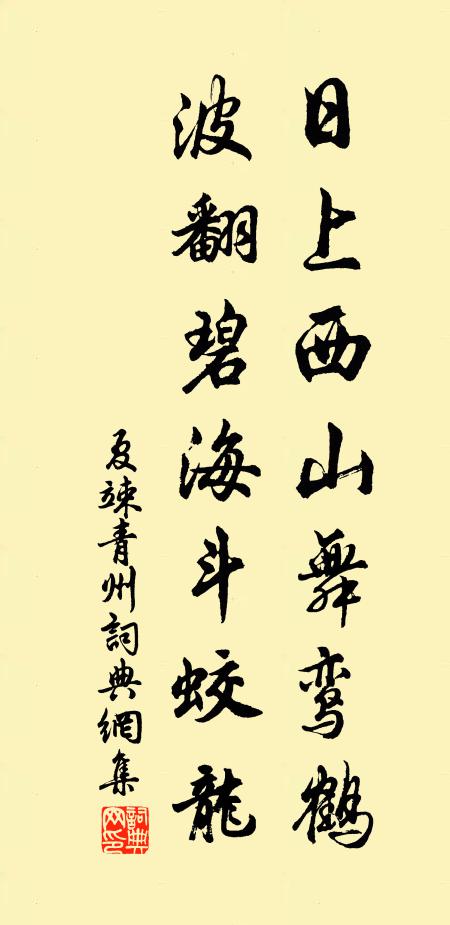 日上西山舞鸾鹤
波翻碧海斗蛟龍
夏竦青州詞典網集
詞典
网印